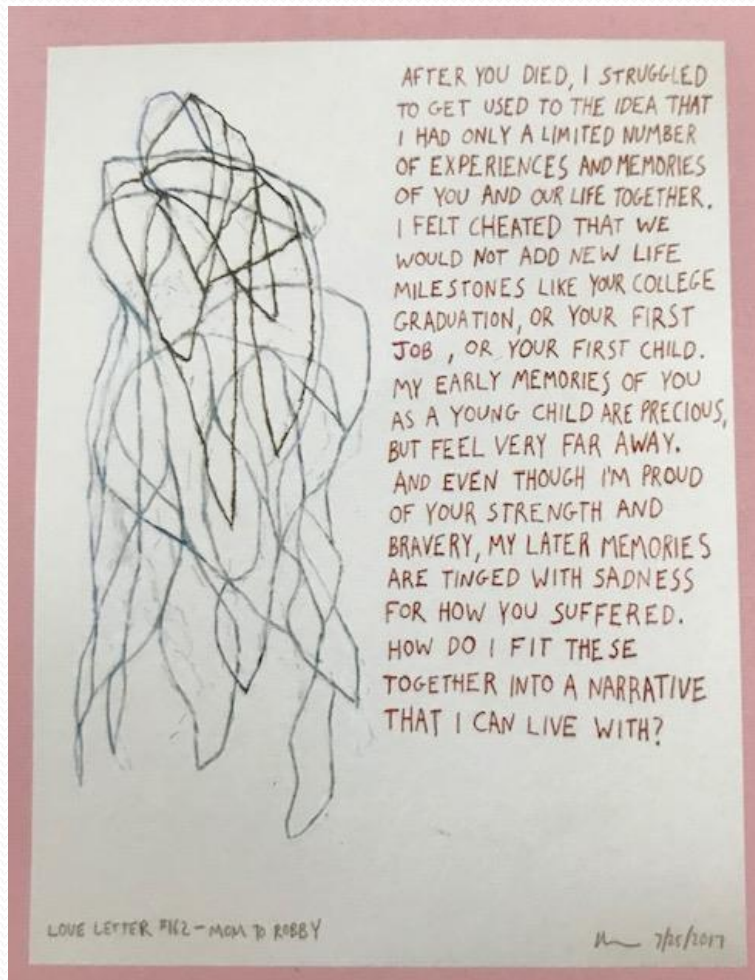 AFTER YOU DIED, I STRUGGLED
TO GET USED TO THE IDEA THAT
I HAD ONLY A LIMITED NUMBER
OF EXPERIENCES AND MEMORIES
OF YOU AND OUR LIFE TOGETHER.
I FELT CHEATED THAT WE
WOULD NOT ADD NEW LIFE
MILESTONES LIKE YOUR COLLEGE
GRADUATION, OR YOUR FIRST
JOB, OR YOUR FIRST CHILD.
MY EARLY MEMORIES OF YOU
AS A YOUNG CHILD ARE PRECIOUS,
BUT FEEL VERY FAR AWAY.
AND EVEN THOUGH I'M PROUD
OF YOUR STRENGTH AND
BRAVERY, MY LATER MEMORIES
ARE TINGED WITH SADNESS
FOR HOW YOU SUFFERED.
HOW DO I FIT THESE
TOGETHER INTO A NARRATIVE
THAT I CAN LIVE WITH?
LOVE LETTER #162 - MOM TO ROBBY
7/25/2017